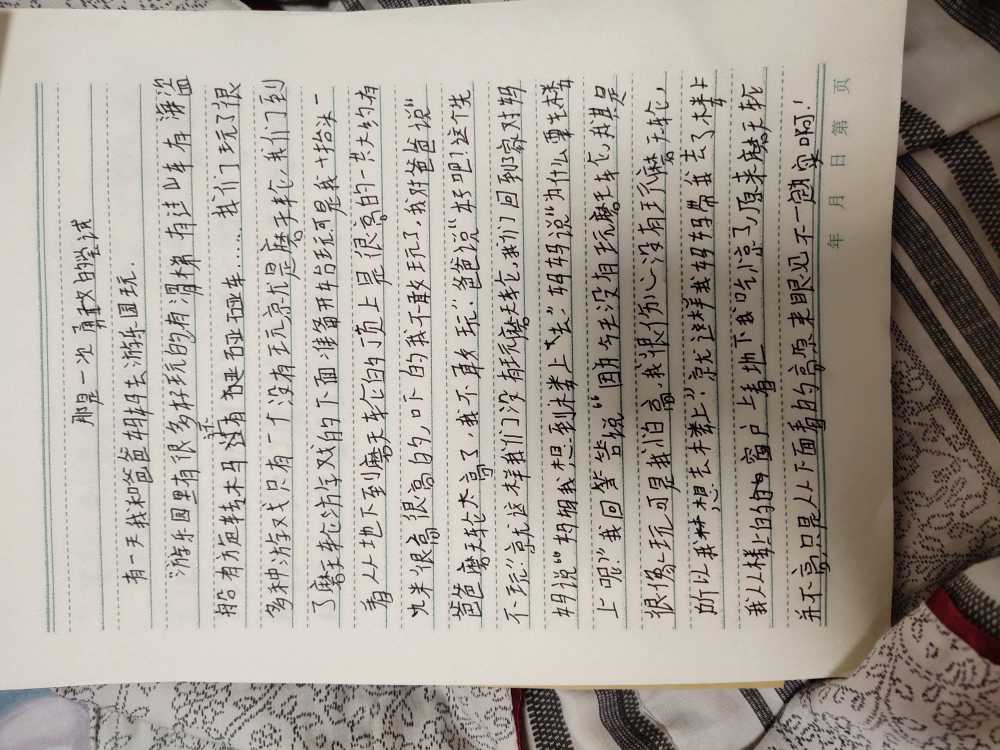 那是一次勇敢的尝试
有一天我和爸爸妈妈去游乐园玩.
游乐园里有很多好玩的有滑梯有过山车有海盗
船有旋转木马还有碰碰碰车……我们玩了很
多种游戏只有一个没有玩京尤是摩天轮,我们到
了磨天轮游戏的下面准备开车台玩可是我十抬头一
看从地下到磨天轮的了页上是很高的一共大约有
九米很高很高的,吓的我不敢玩了我对爸爸说“
爸爸磨天轮太高了,我不敢玩”爸爸说“好吧这个先
不玩”京尤这样我们没有玩磨天轮,我们回到家对妈
妈说“妈妈我想到楼上去”妈妈说“为什么要去楼
上呢”我回答说“因为今天没有玩磨天轮,我其是
很像玩可是我怕高,我很伤心没有玩磨天轮,
所以我想去楼上”京尤这样我妈妈带我去了楼上
我从楼上的窗户上看地下我吃惊了原来磨天轮
并不高只是从下面看的高原来眼见不一题实啊!
年 月 日 第 页